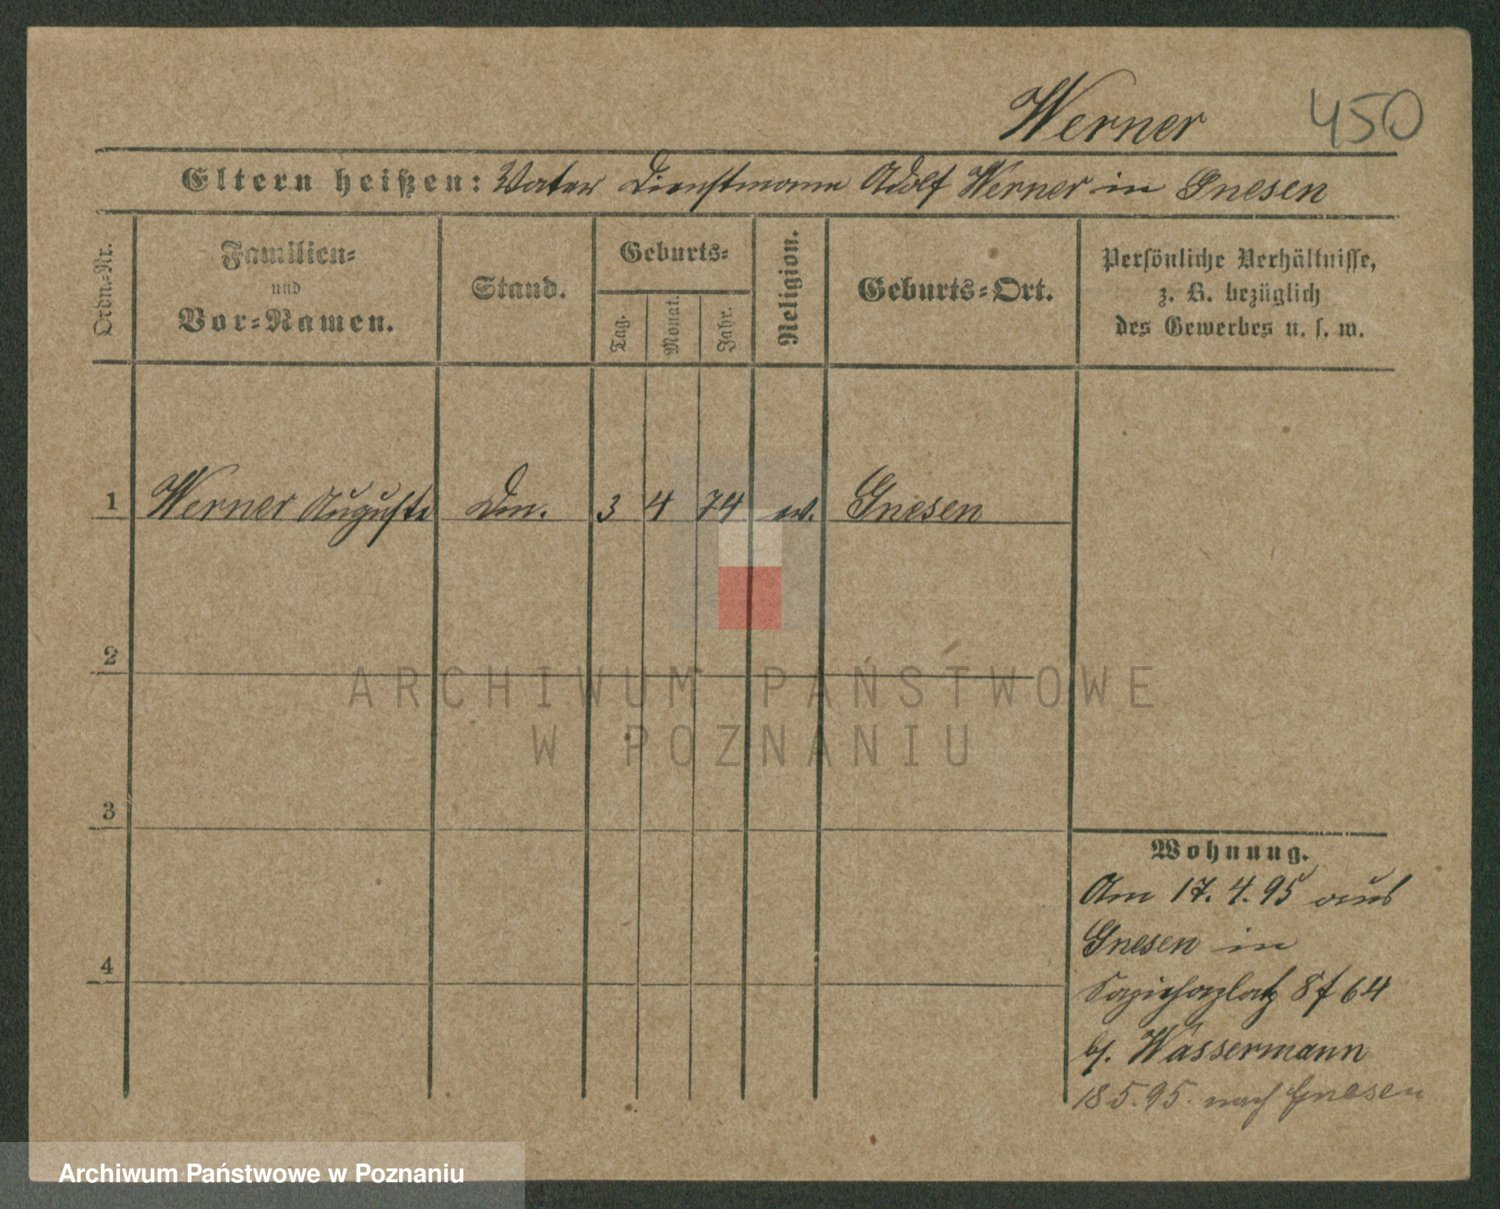 Werner 450
Eltern heißen: Vater Dienstmann Adolf Werner in Gnesen
Ordn.-Nr.
Familien-
und
Vor-Namen.
Stand.
Geburts-
Tag.
Monat.
Jahr.
Religion.
Geburts-Ort.
Persönliche Verhältnisse,
z. B. bezüglich
des Gewerbes u. s. w.
1 Werner Auguste Dm. 3 4 74 ev. Gnesen
2
ARCHIWUM PAŃSTWOWE
W POZNANIU
3
Wohnung.
Am 17. 4. 95 aus
Gnesen in
4
Sapiehaplatz 8 f 64
bj. Wassermann
18.5.95. nach Gnesen
Archiwum Państwowe w Poznaniu